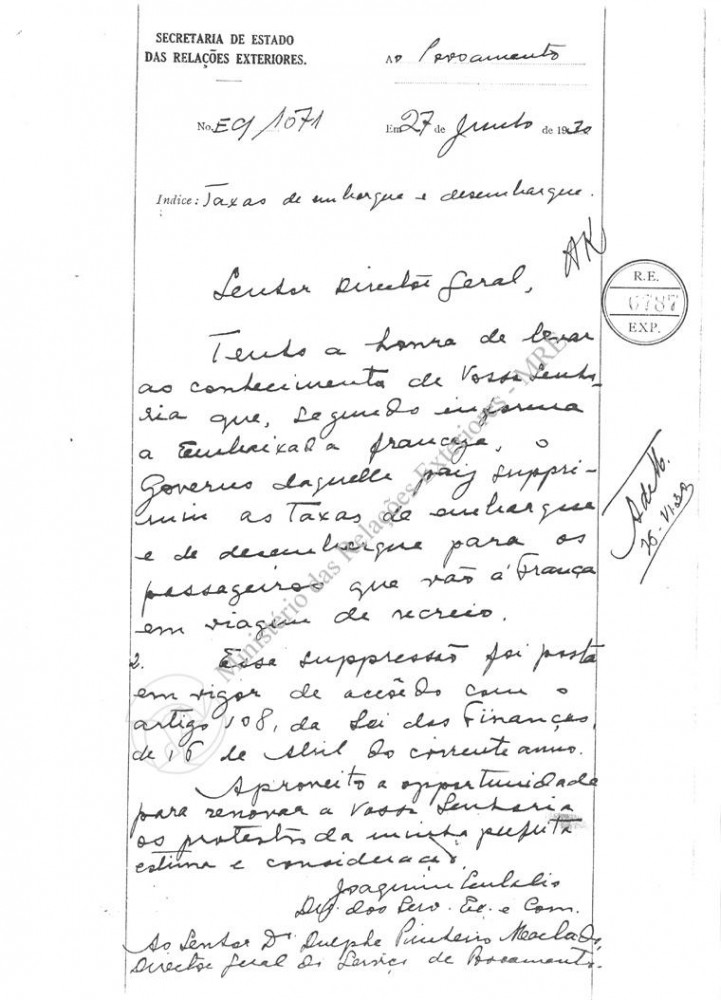 SECRETARIA DE ESTADO
DAS RELAÇÕES EXTERIORES.
Ao Povoamento
No. EC/1071
Em 27 de Junho de 1930
Indice: Taxas de embarque e desembarque.
AK
Senhor Director Geral,
R.E.
6787
EXP.
Tenho a honra de levar
ao conhecimento de Vossa Senho-
ria que, segundo informa
a Embaixada franceza, o
Governo daquelle paiz suppri-
miu as taxas de embarque
e de desembarque para os
passageiros que vão á França
em viagem de recreio.
26-VI-30
2. Essa suppressão foi posta
em vigor de accôrdo com o
artigo 108, da Lei das Finanças,
de 16 de Abril do corrente anno.
Aproveito a opportunidade
para renovar a Vossa Senhoria
os protestos da minha perfeita
estima e consideração.
Joaquim Eulalio
Dir. dos Serv. Ec. e Com.
Ao Senhor Dr Dulphe Pinheiro Machado,
Director Geral do Serviço de Povoamento.
Ministério das Relações Exteriores - MRE